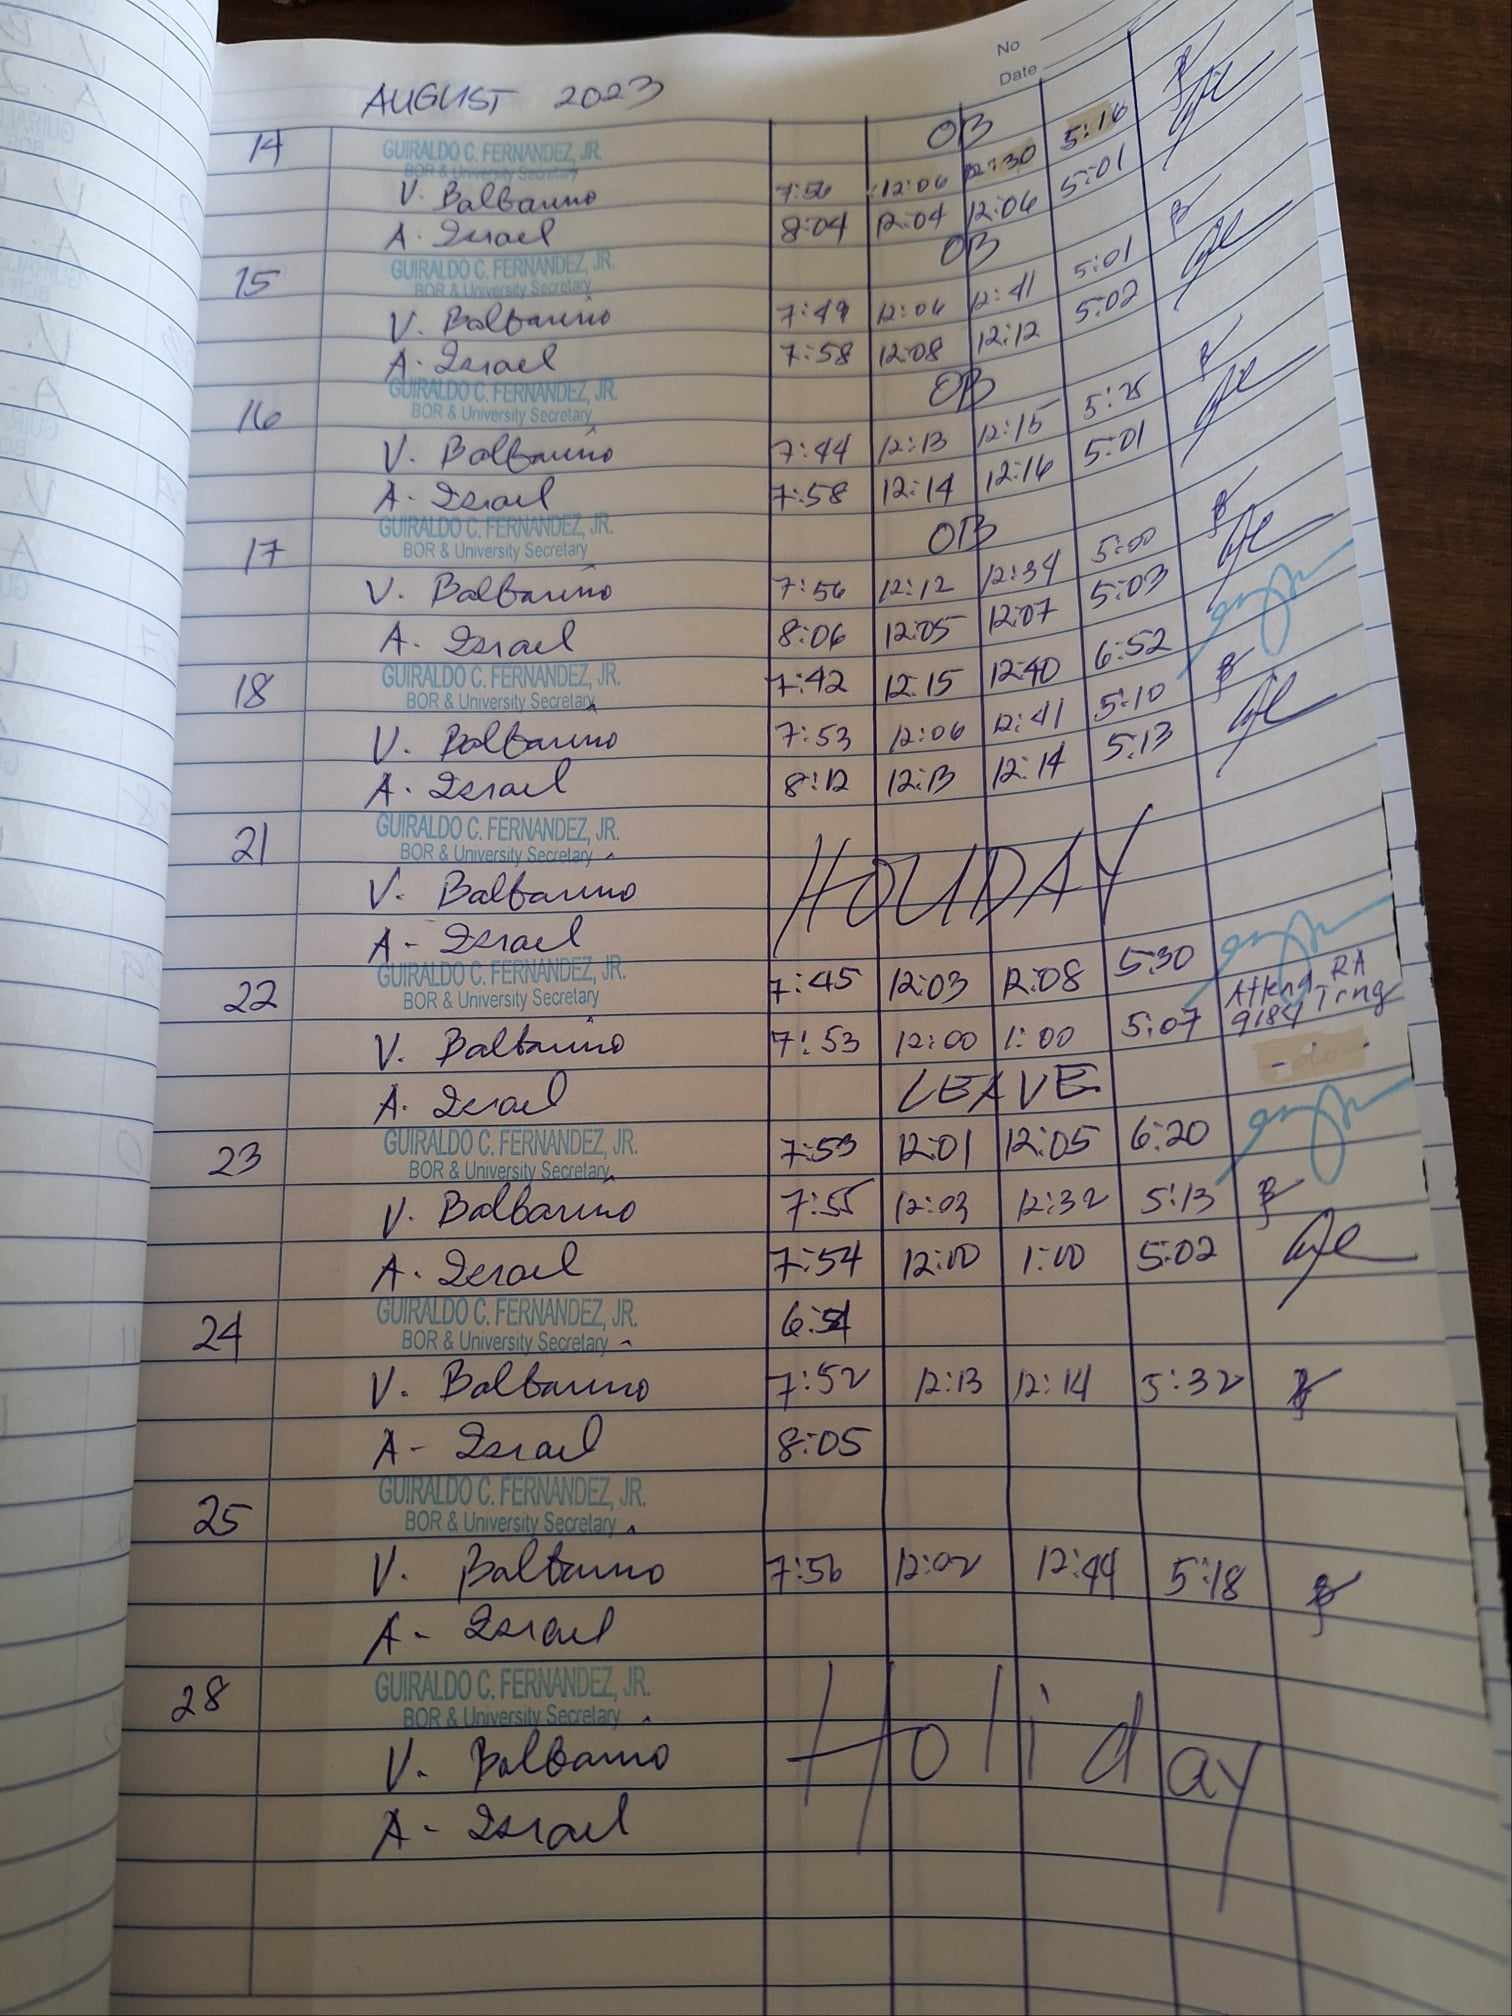 No
Date
AUGUST 2023
14 GUIRALDO C. FERNANDEZ, JR. OB
BOR & University Secretary
V. Balbarino 7:56 12:06 12:30 5:16
A. Israel 8:04 12:04 12:06 5:01
15 GUIRALDO C. FERNANDEZ, JR. OB
BOR & University Secretary
V. Balbarino 7:49 12:06 12:41 5:01
A. Israel 7:58 12:08 12:12 5:02
16 GUIRALDO C. FERNANDEZ, JR. OB
BOR & University Secretary
V. Balbarino 7:44 12:13 12:15 5:25
A. Israel 7:58 12:14 12:16 5:01
17 GUIRALDO C. FERNANDEZ, JR. OB
BOR & University Secretary
V. Balbarino 7:56 12:12 12:34 5:00
A. Israel 8:06 12:05 12:07 5:03
18 GUIRALDO C. FERNANDEZ, JR. 7:42 12:15 12:40 6:52
BOR & University Secretary
V. Balbarino 7:53 12:06 12:41 5:10
A. Israel 8:12 12:13 12:14 5:13
21 GUIRALDO C. FERNANDEZ, JR.
BOR & University Secretary
V. Balbarino HOLIDAY
A - Israel
22 GUIRALDO C. FERNANDEZ, JR. 7:45 12:03 12:08 5:30
BOR & University Secretary
V. Balbarino 7:53 12:00 1:00 5:07 Attend RA
9184 Trng
A. Israel LEAVE - do -
23 GUIRALDO C. FERNANDEZ, JR. 7:53 12:01 12:05 6:20
BOR & University Secretary
V. Balbarino 7:55 12:03 12:32 5:13
A. Israel 7:54 12:00 1:00 5:02
24 GUIRALDO C. FERNANDEZ, JR. 6:54
BOR & University Secretary
V. Balbarino 7:52 12:13 12:14 5:32
A - Israel 8:05
25 GUIRALDO C. FERNANDEZ, JR.
BOR & University Secretary
V. Balbarino 7:56 12:02 12:44 5:18
A - Israel
28 GUIRALDO C. FERNANDEZ, JR.
BOR & University Secretary
V. Balbarino Holiday
A - Israel